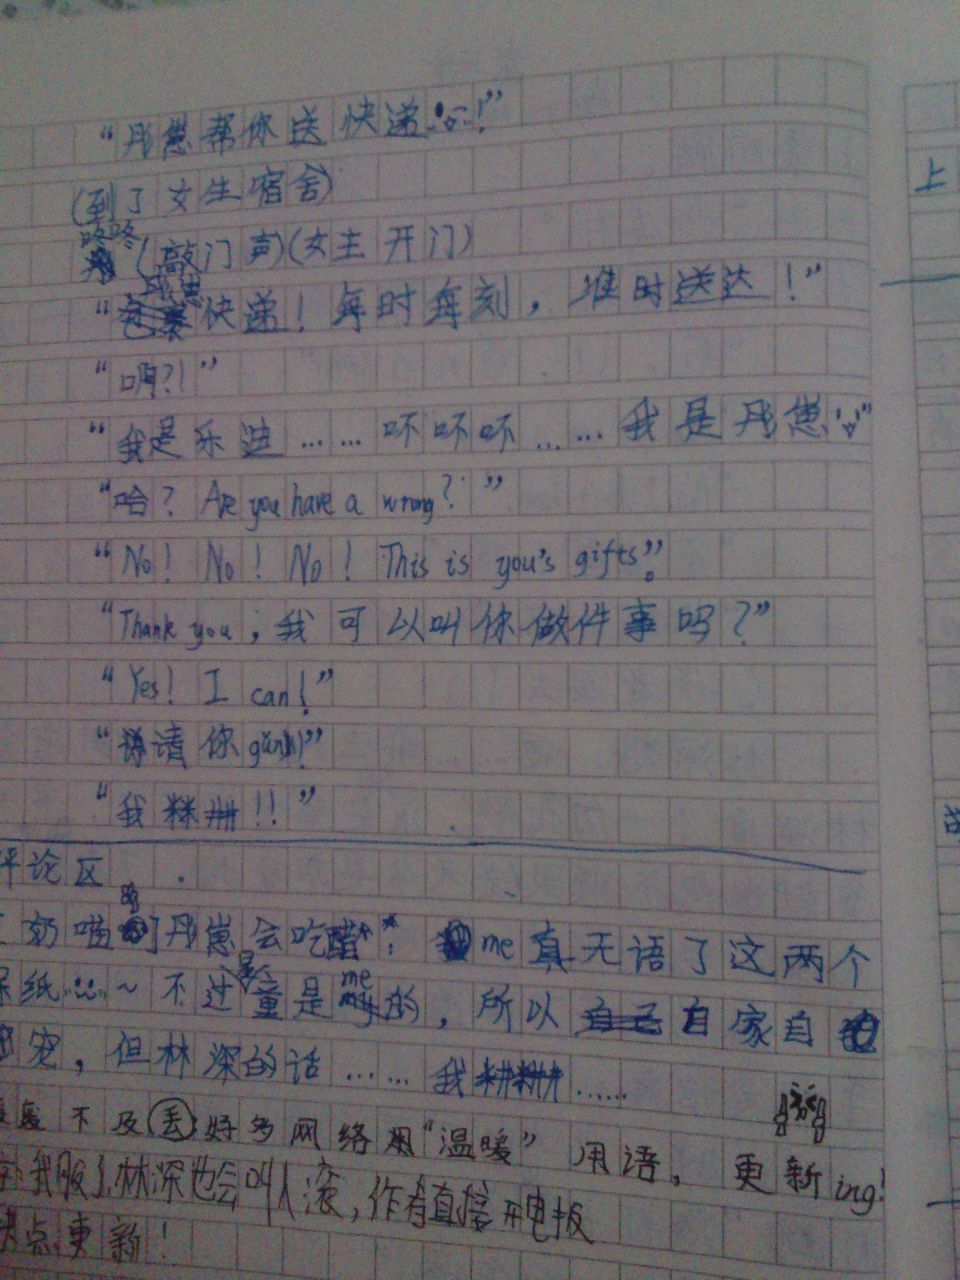 “丹崽帮你送快递!”
(到了女生宿舍)
咚咚(敲门声)(女主开门)
“丹崽快递！每时每刻，准时送达！”
“啊?!”
“我是乐进……呸呸呸……我是丹崽”
“哈？Are you have a wrong?”
“No！No！No！This is you's gifts”。
“Thank you，我可以叫你做件事吗？”
“Yes! I can!”
“请你gǔn!”
“我##!!”
评论区
奶喵的丹崽会吃醋! me真无语了这两个
纸~不过是童是me的，所以自家自
宠，但林深的话……我##……
不及丢好多网络用“温暖”用语，更新ing!
我服了,林深也会叫人滚,作者直接开电扳
快点更新！
上